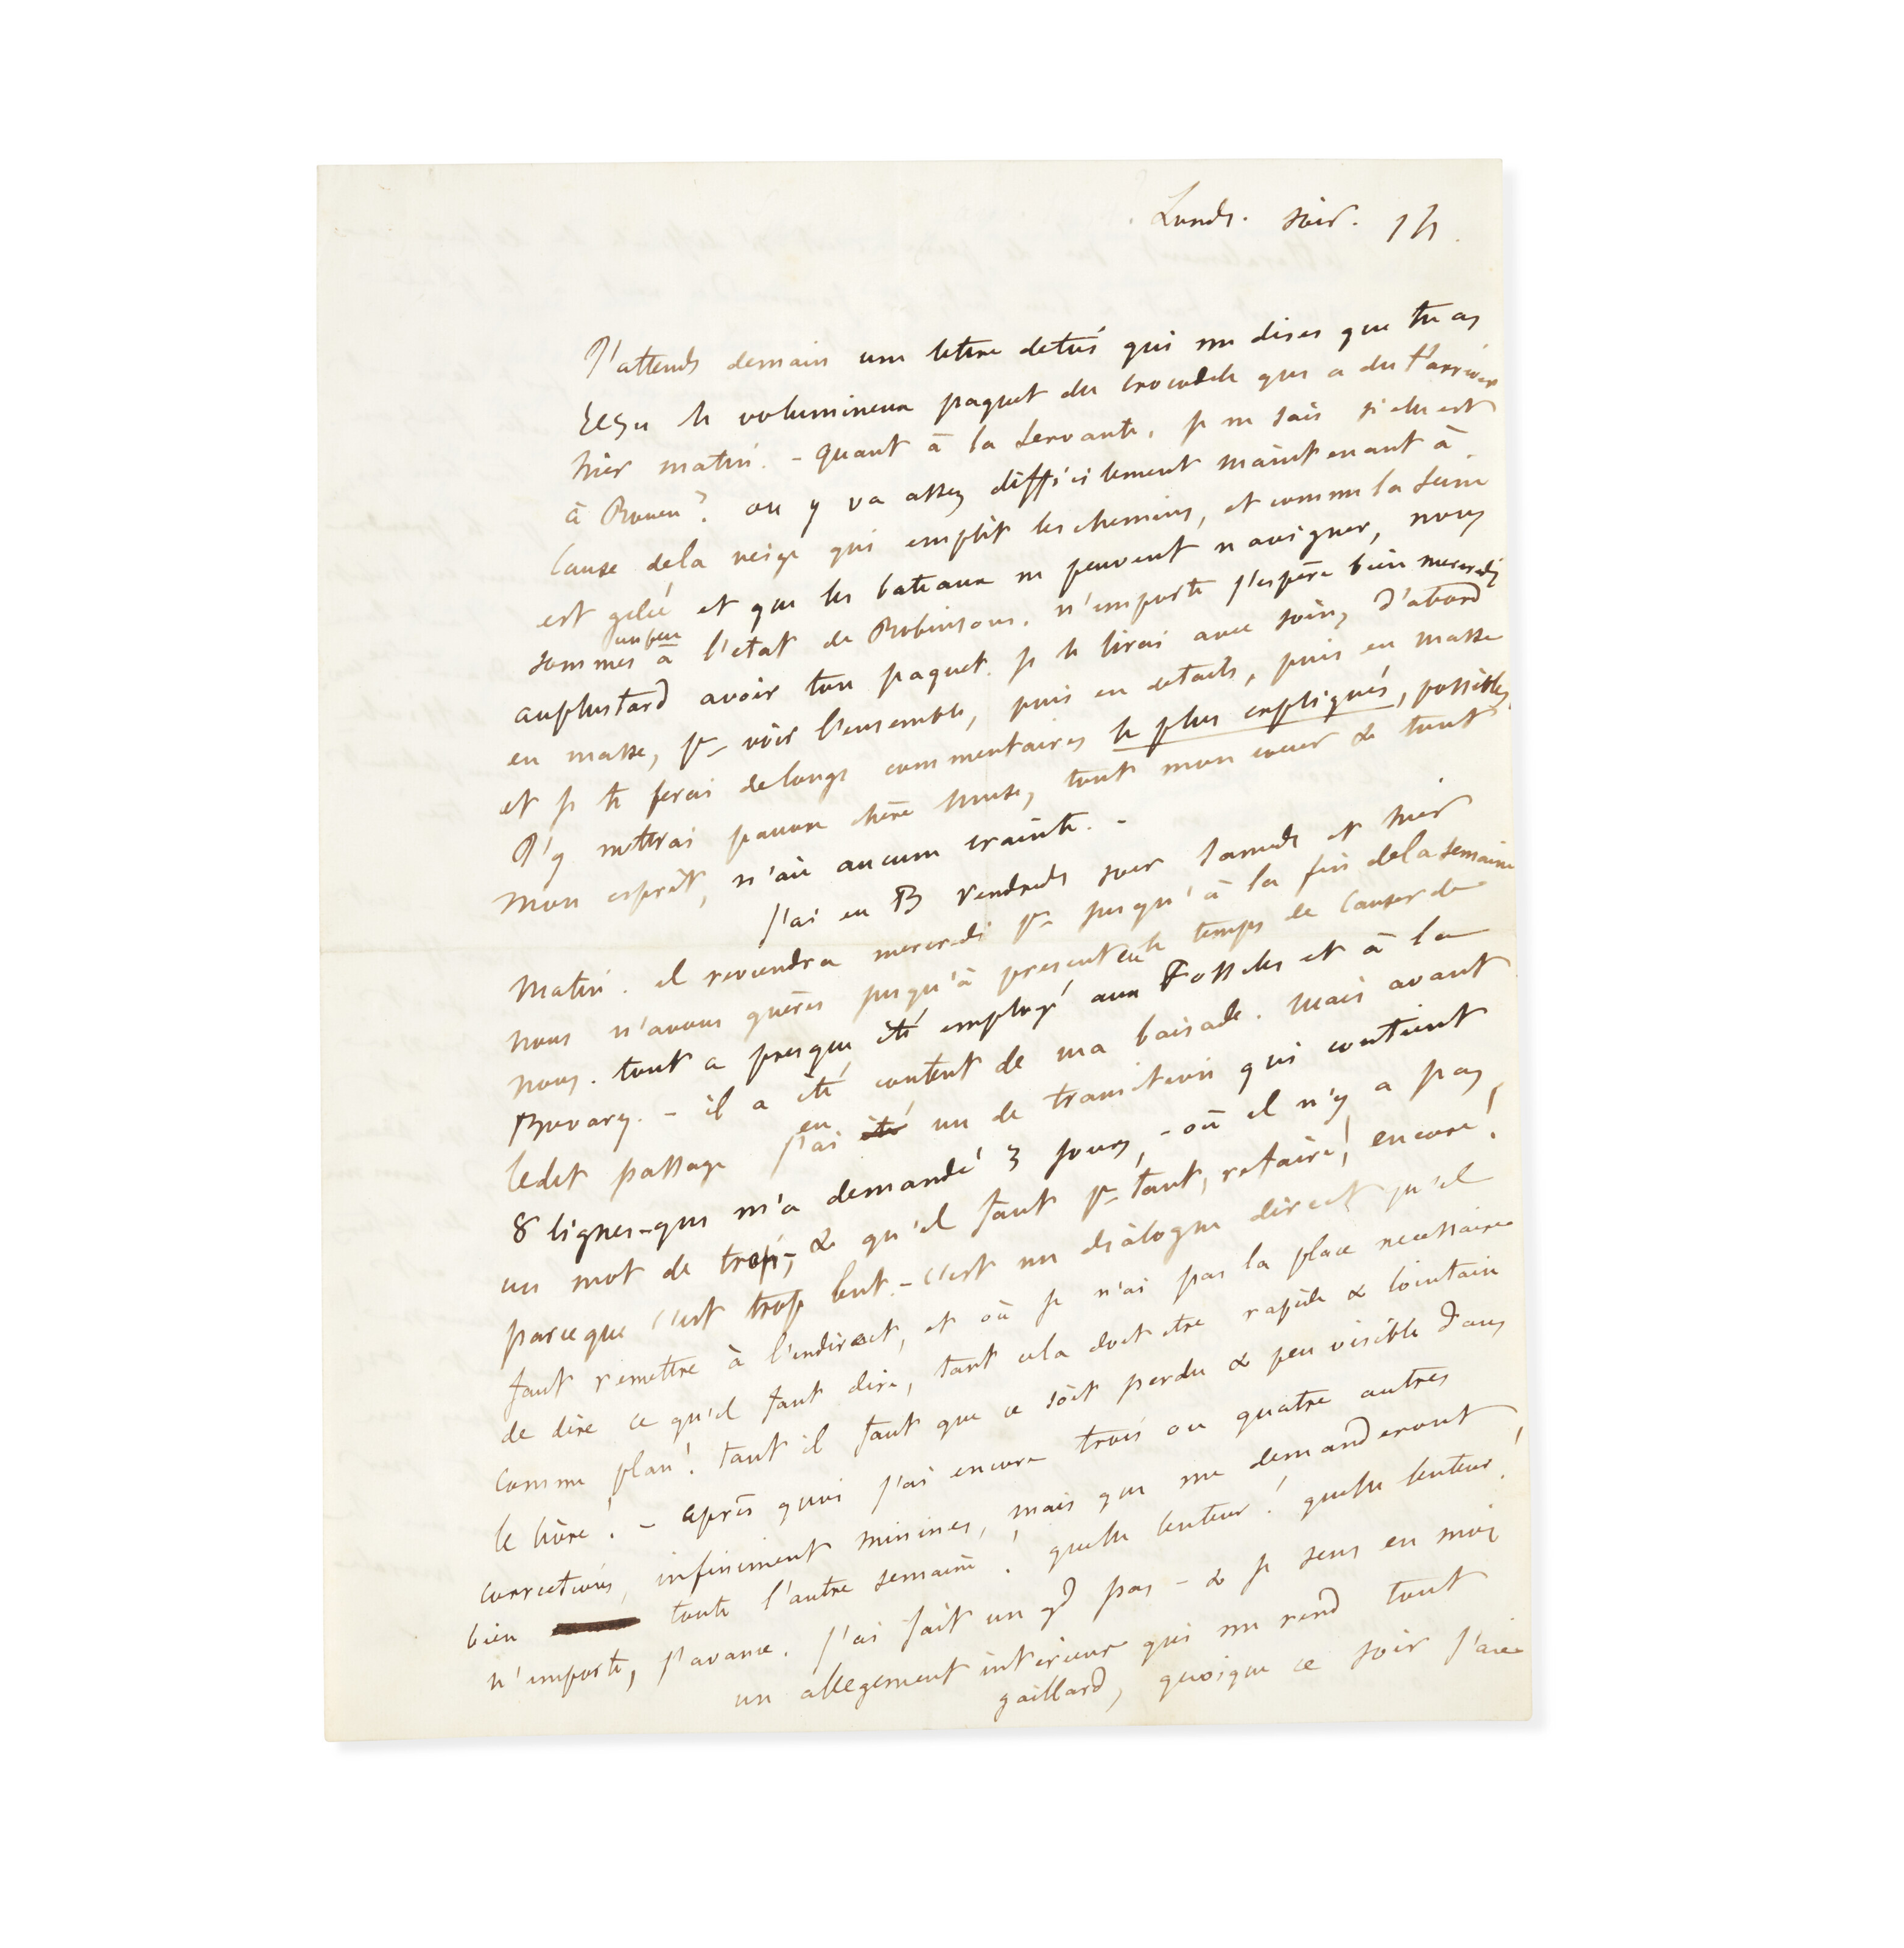 Lundi. soir. 1 h.
J'attends demain une lettre de toi qui me dises que tu as
reçu le volumineux paquet du crocodile qui a du t'arriver
hier matin. - Quant à la Servante, je ne sais si elle est
à Rouen? on y va assez difficilement maintenant à
cause de la neige qui emplit les chemins, et comme la Seine
est gelée et que les bateaux ne peuvent naviguer, nous
sommes un peu à l'etat de Robinsons. n'importe j'espère bien mercredi
au plus tard avoir ton paquet. je le lirai avec soin, d'abord
en masse, pr voir l'ensemble, puis en details, puis en masse
et je te ferai de longs commentaires le plus expliqués, possibles,
J'y mettrai pauvre chère Muse, tout mon coeur & tout
mon esprit, n'aie aucune crainte. -
J'ai eu B vendredi soir samedi et hier
matin. il reviendra mercredi pr jusqu'à la fin de la semaine
nous n'avons guères jusqu'à present eu le temps de causer de
nous. tout a presque été employé aux Fossiles et à la
Bovary. - il a été content de ma baisade. mais avant
ledit passage j'ai eu été un de transition qui contient
8 lignes - qui m'a demandé 3 jours, - où il n'y a pas
un mot de trop, & qu'il faut pr tant, refaire, encore!
parceque c'est trop lent. - c'est un dialogue direct qu'il
faut remettre à l'indirect, et où je n'ai pas la place necessaire
de dire ce qu'il faut dire, tant cela doit etre rapide & lointain
comme plan! tant il faut que ce soit perdu & peu visible dans
le livre! - après quoi j'ai encore trois ou quatre autres
corrections, infiniment minimes, mais qui me demanderont
bien toute l'autre semaine! quelle lenteur! quelle lenteur!
n'importe, j'avance. J'ai fait un gd pas - & je sens en moi
un allegement intérieur qui me rend tout
gaillard, quoique ce soir j'aie